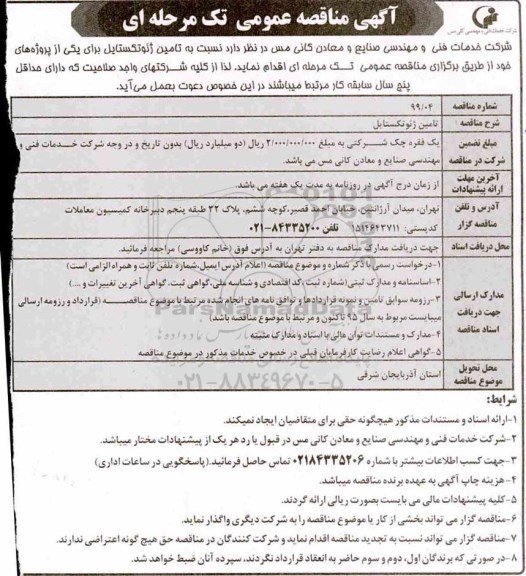 آگهی مناقصه عمومی تک مرحله ای
شرکت خدمات فنی و مهندسی صنایع و معادن کانی مس در نظر دارد نسبت به تامین ژئوتکستایل برای یکی از پروژه‌های
خود از طریق برگزاری مناقصه عمومی تک مرحله ای اقدام نماید. لذا از کلیه شرکتهای واجد صلاحیت که دارای حداقل
پنج سال سابقه کار مرتبط میباشند در این خصوص دعوت بعمل می‌آید.
شماره مناقصه
۹۹/۰۴
شرح مناقصه
تامین ژئوتکستایل
مبلغ تضمین
شرکت در مناقصه
یک فقره چک شرکتی به مبلغ ۲/۰۰۰/۰۰۰/۰۰۰ ریال (دو میلیارد ریال) بدون تاریخ و در وجه شرکت خدمات فنی و
مهندسی صنایع و معادن کانی مس می باشد.
آخرین مهلت
ارائه پیشنهادات
از زمان درج آگهی در روزنامه به مدت یک هفته می باشد.
آدرس و تلفن
مناقصه گزار
تهران، میدان آرژانتین، خیابان احمد قصیر، کوچه ششم، پلاک ۳۲ طبقه پنجم دبیرخانه کمیسیون معاملات
کدپستی: ۱۵۱۴۶۴۳۷۱۱ تلفن ۸۴۳۳۵۲۰۰-۰۲۱
محل دریافت اسناد
جهت دریافت مدارک مناقصه به دفتر تهران به آدرس فوق (خانم کاووسی) مراجعه فرمائید.
مدارک ارسالی
جهت دریافت
اسناد مناقصه
۱-درخواست رسمی با ذکر شماره و موضوع مناقصه (اعلام آدرس ایمیل، شماره تلفن ثابت و همراه الزامی است)
۲-اساسنامه و مدارک ثبتی (شماره ثبت، کد اقتصادی و شناسه ملی، گواهی ثبت، گواهی آخرین تغییرات و ....)
۳-رزومه سوابق تامین و نمونه قراردادها و توافق نامه های انجام شده مرتبط با موضوع مناقصه (قرارداد و رزومه ارسالی
میبایست مربوط به سال ۹۵ تاکنون و مرتبط با موضوع مناقصه باشد)
۴-مدارک و مستندات توان مالی با اسناد و مدارک مثبته
۵-گواهی اعلام رضایت کارفرمایان قبلی در خصوص خدمات مذکور در موضوع مناقصه
محل تحویل
موضوع مناقصه
استان آذربایجان شرقی
۰۲۱-۸۸۳۴۹۶۷۰-۵
شرایط:
۱-ارائه اسناد و مستندات مذکور هیچگونه حقی برای متقاضیان ایجاد نمیکند.
۲-شرکت خدمات فنی و مهندسی صنایع و معادن کانی مس در قبول یا رد هر یک از پیشنهادات مختار میباشد.
۳-جهت کسب اطلاعات بیشتر با شماره ۰۲۱۸۴۳۳۵۲۰۶ تماس حاصل فرمائید.(پاسخگویی در ساعات اداری)
۴-هزینه چاپ آگهی به عهده برنده مناقصه میباشد.
۵-کلیه پیشنهادات مالی می بایست بصورت ریالی ارائه گردند.
۶-مناقصه گزار می تواند بخشی از کار یا موضوع مناقصه را به شرکت دیگری واگذار نماید.
۷-مناقصه گزار می تواند نسبت به تجدید مناقصه اقدام نماید و شرکت کنندگان در مناقصه حق هیچ گونه اعتراضی ندارند.
۸-در صورتی که برندگان اول، دوم و سوم حاضر به انعقاد قرارداد نگردند، سپرده آنان ضبط خواهد شد.